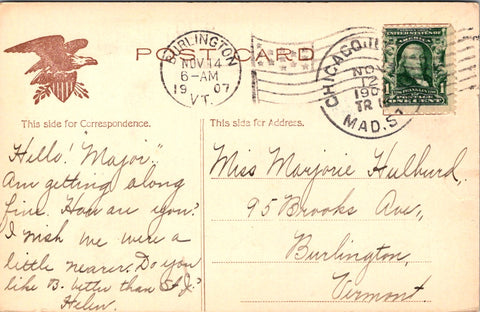 POST CARD
BURLINGTON
NOV 14
6-AM
1907
VT.
CHICAGO, ILL
NOV
12
190
TR 1
MAD. ST
1
ONE CENT
This side for Correspondence.
This side for Address.
Hello! "Major".
Am getting along
fine. How are you?
I wish we were a
little nearer. Do you
like B. better than St. J.?
Helen.
Miss Marjorie Hulburd,
95 Brooks Ave.,
Burlington,
Vermont